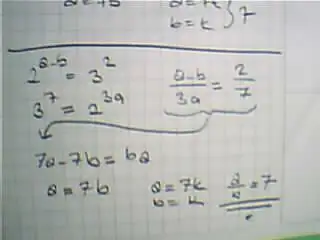 a=7b a=7k
b=k } 7
2^(a-b) = 3^2
3^7 = 2^(3a)
(a-b)/(3a) = 2/7
7a-7b=6a
a=7b a=7k
b=k
a/a=7